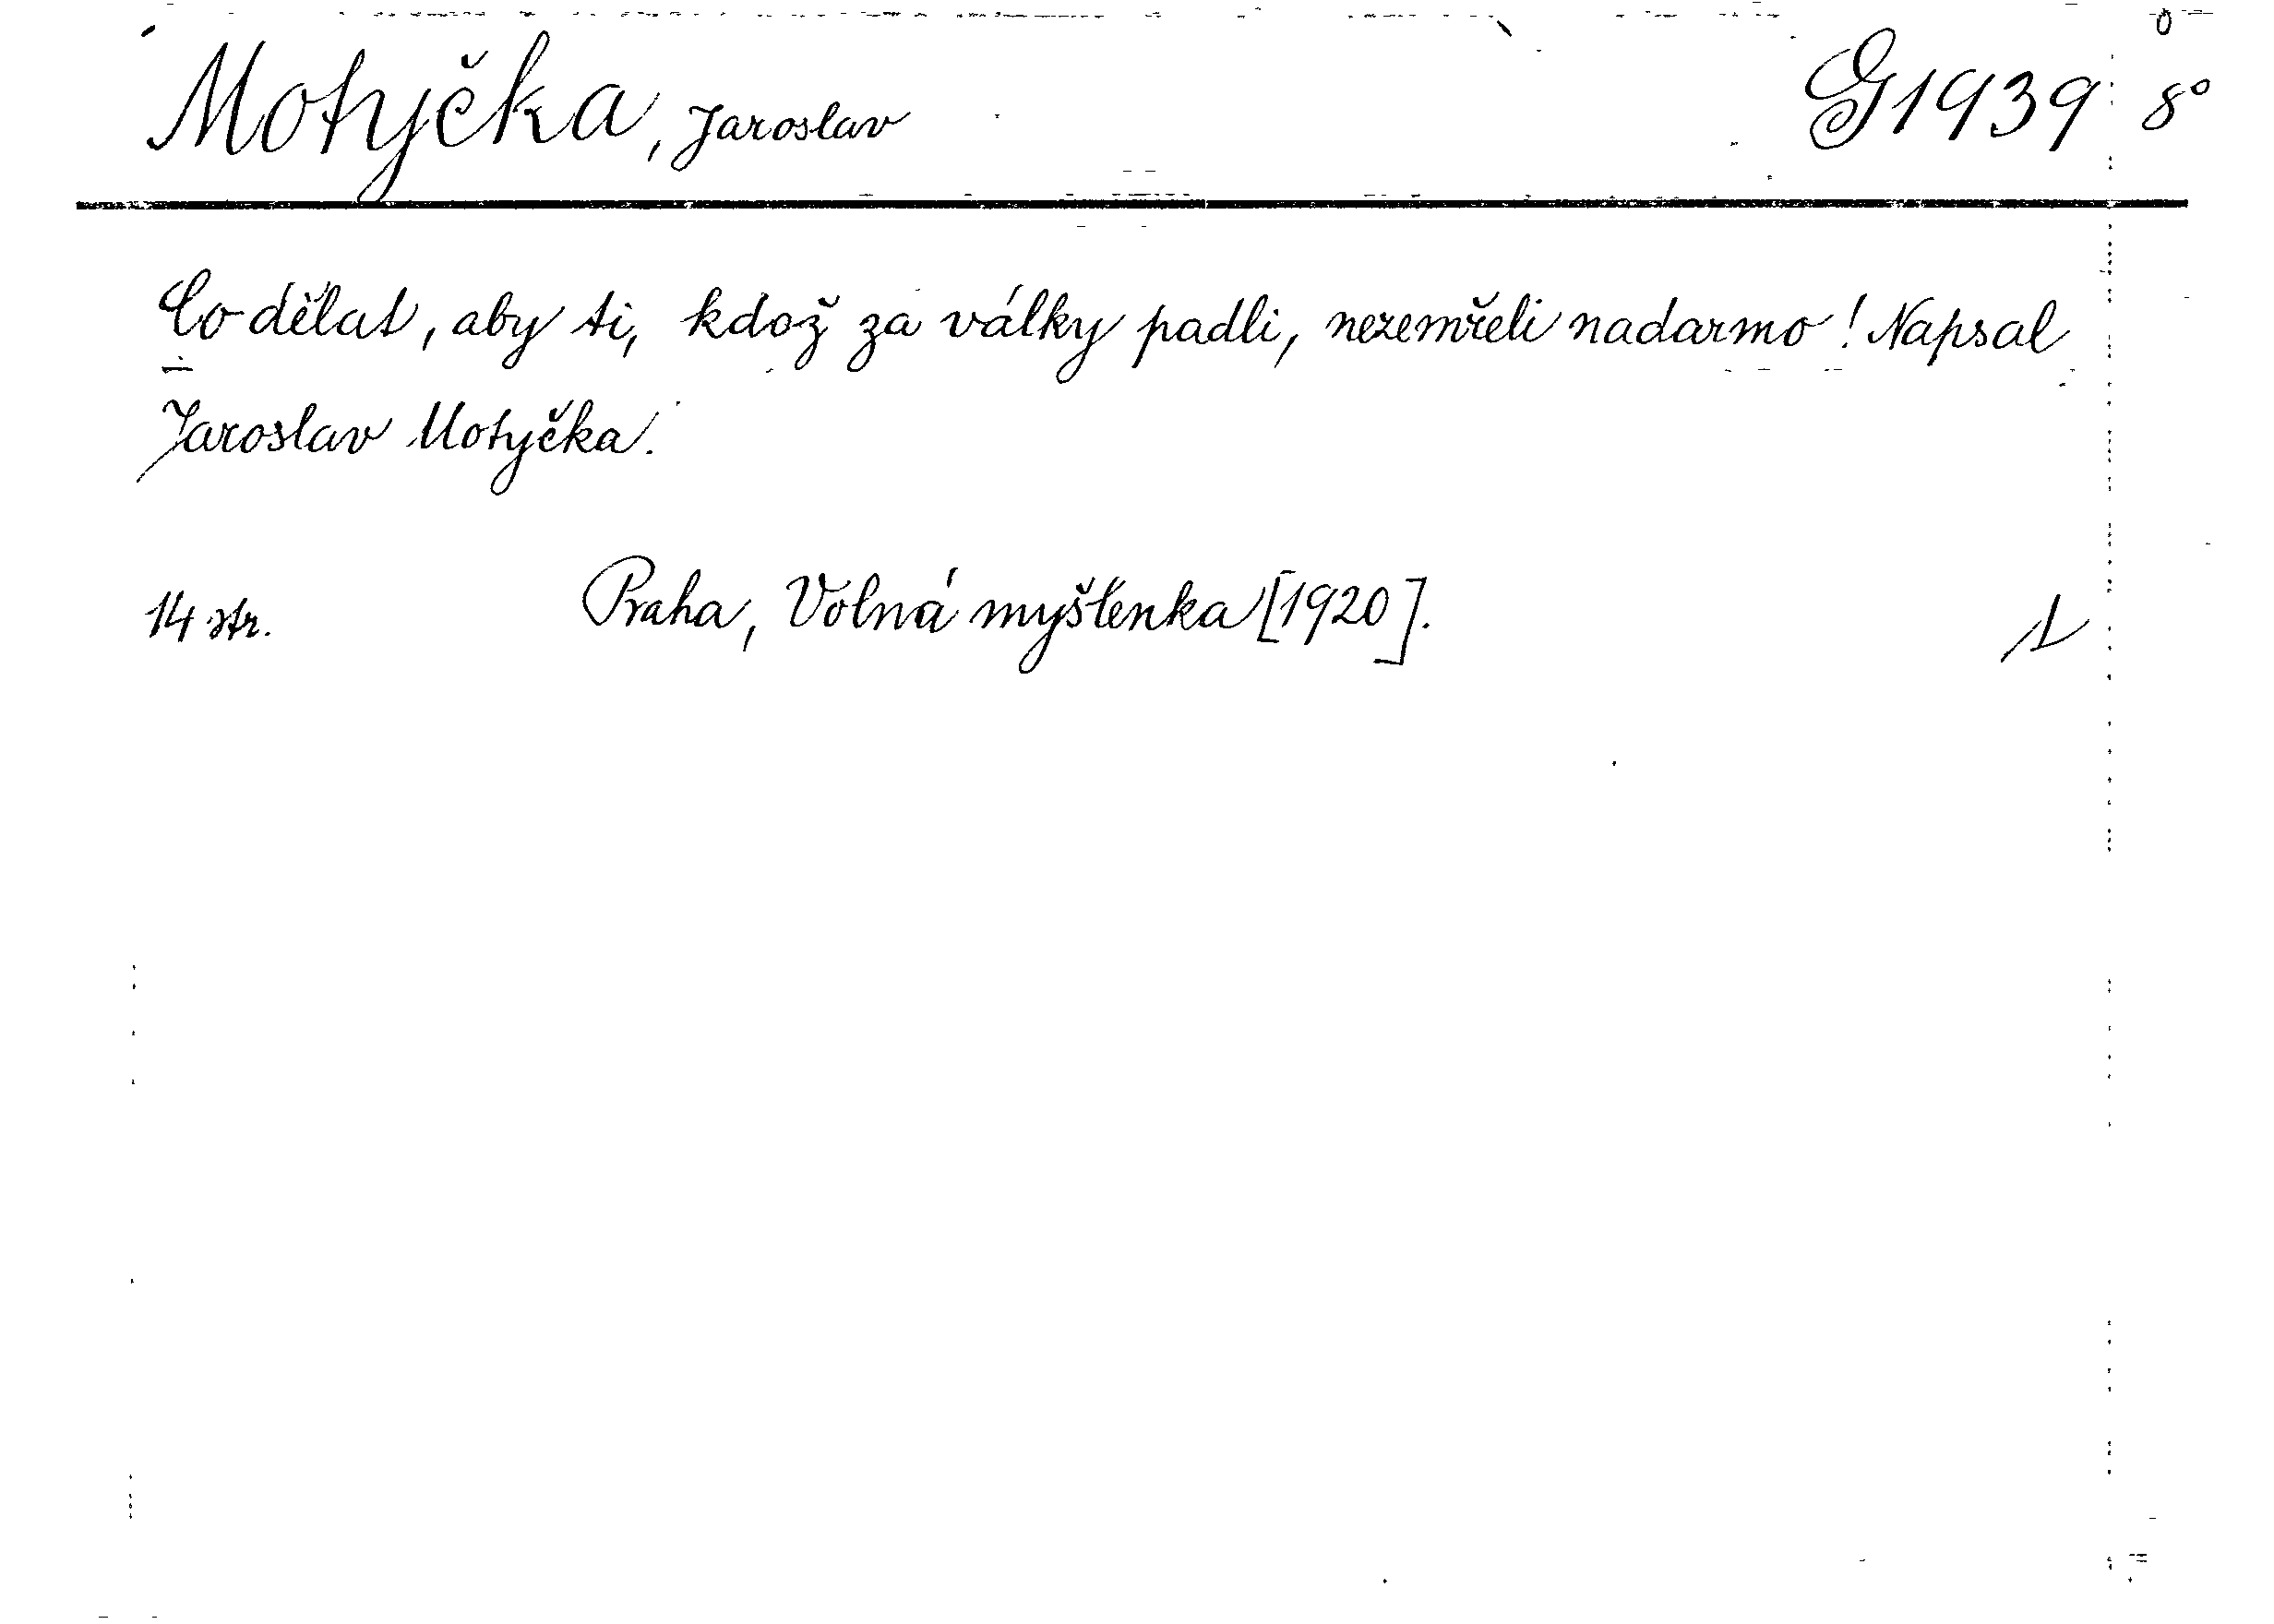 Motyčka, Jaroslav G1939 8°
Co dělat, aby ti, kdož za války padli, nezemřeli nadarmo! Napsal
Jaroslav Motyčka.
14 str. Praha, Volná myšlenka [1920].